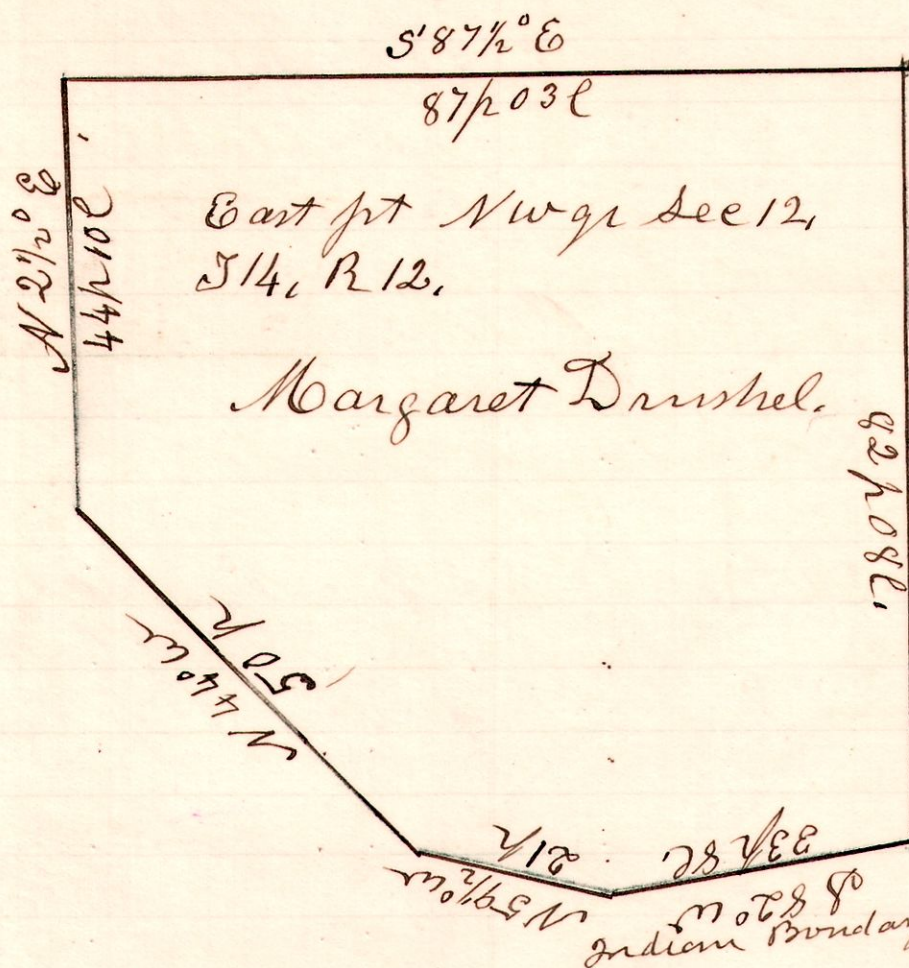 S 87½° E
87p 03l
N 2½° E
44p 10l
East pt Nwqr Sec 12,
T14, R 12,
Margaret Drushel.
82p 08l.
N 44° W
50 p
21p
N 59½° W
33p 8l.
S 82° W
Indian Boundary